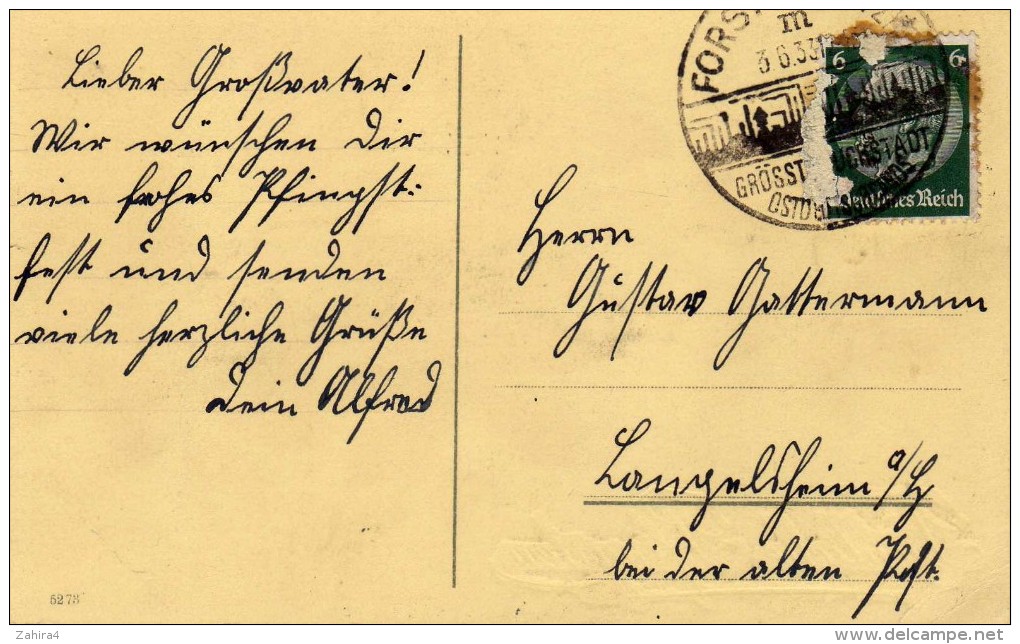 Lieber Großvater!
Wir wünschen Dir
ein frohes Pfingst-
fest und senden
viele herzliche Grüße
Dein Alfred
3.6.33
6
6
Deutsches Reich
Herrn
Gustav Gattermann
Langelsheim a/H
bei der alten Post.
5273
Zahira4
www.delcampe.net